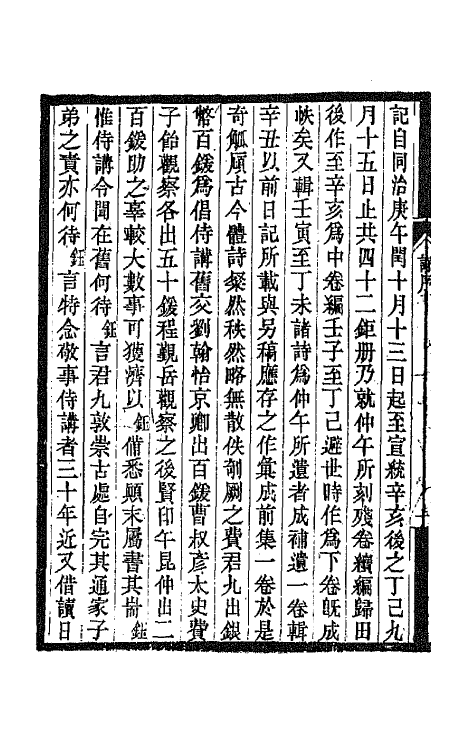 記自同治庚午閏十月十三日起至宣統辛亥後之丁巳九
月十五日止共四十二鉅册乃就仲午所刻殘卷續編歸田
後作至辛亥爲中卷編壬子至丁巳避世時作爲下卷旣成
帙矣又輯壬寅至丁未諸詩爲仲午所遺者成補遺一卷輯
辛丑以前日記所載與另稿應存之作彙成前集一卷於是
奇觚廎古今體詩粲然秩然略無散佚剞劂之費君九出銀
幣百鍰爲倡侍講舊交劉翰怡京卿出百鍰曹叔彥太史費
子飴觀察各出五十鍰程覲岳觀察之後賢印午昆仲出二
百鍰助之辜較大數事可獲濟以鈺備悉顚末屬書其耑鈺
惟侍講令聞在舊何待鈺言君九敦崇古處自完其通家子
弟之責亦何待鈺言特念敬事侍講者三十年近又借讀日